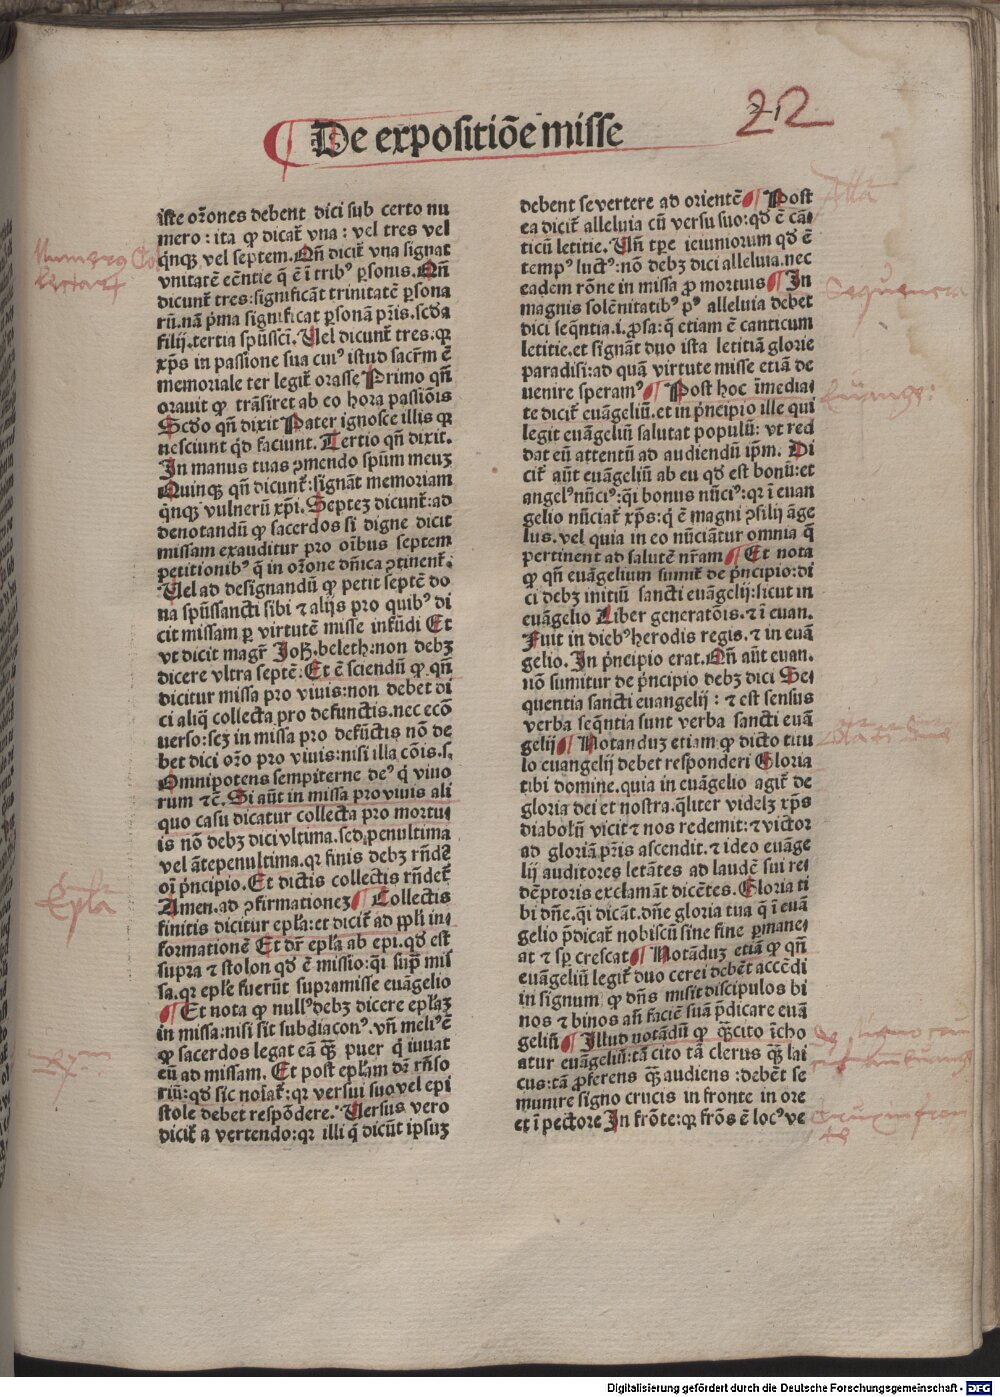 De expositiõe misse
22
iste or̃ones debent dici sub certo nu
mero : ita ꝙ dicat̃ vna : vel tres vel
q̃nqꝫ vel septem. Qñ dicit̃ vna signat
vnitatẽ eẽntie q̃ ẽ ĩ tribꝰ ꝑsonis. Qñ
dicunt̃ tres : significãt trinitatẽ ꝑsona
rũ. nã p̃ma significat ꝑsonã pr̃is. scḋa
filij. tertia spũssc̃i. Uel dicunt̃ tres. qꝛ
xp̃s in passione sua cuiꝰ istud sacr̃m ẽ
memoriale ter legit̃ orasse Primo qñ
orauit ꝙ trãsiret ab eo hora passiõis
Scḋo qñ dixit Pater ignosce illis qꝛ
nesciunt qḋ faciunt. Tertio qñ dixit.
In manus tuas ꝯmendo spũm meuꝫ
Quinqꝫ qñ dicunt̃ : signãt memoriam
q̃nqꝫ vulnerũ xp̃i. Septeꝫ dicunt̃ : ad
denotandũ ꝙ sacerdos si digne dicit
missam exauditur pro oĩbus septem
petitionibꝰ q̃ in or̃one dñica ꝯtinent̃.
Uel ad designandũ ꝙ petit septẽ do
na spũssancti sibi ⁊ alijs pro quibꝰ di
cit missam ꝑ virtutẽ misse infũdi Et
vt dicit magr̃ Joh̃. beleth : non debꝫ
dicere vltra septẽ : Et ẽ sciendũ ꝙ qñ
dicitur missa pro viuis : non debet di
ci aliq̃ collecta pro defunctis. nec ecõ
uerso : scꝫ in missa pro defũctis nõ de
bet dici or̃o pro viuis : nisi illa cõis. s.
Omnipotens sempiterne deꝰ q̃ viuo
rum ⁊c̃. Si aũt in missa pro viuis ali
quo casu dicatur collecta pro mortu
is nõ debꝫ dici vltima. sed penultima
vel ãtepenultima. qꝛ finis debꝫ rñdẽ
ri p̃ncipio. Et dictis collectis rñdet̃
Amen. ad ꝯfirmationeꝫ ¶ Collectis
finitis dicitur epl̃a : et dicit̃ ad ppl̃i in-
formationẽ Et dr̃ epl̃a ab epi. qḋ est
supra ⁊ stolon qḋ ẽ missio : q̃i suꝑ mis
sa. qꝛ epl̃e fuerũt supramisse euãgelio
¶ Et nota ꝙ nullꝰ debꝫ dicere epl̃aꝫ
in missa : nisi sit subdiaconꝰ. vñ meliꝰ ẽ
ꝙ sacerdos legat eã q̃ꝫ puer q̃ iuuat
eũ ad missam. Et post epl̃am dr̃ rñso
riũ : qḋ sic noĩat̃ : qꝛ versui suo vel epi
stole debet respõdere. Uersus vero
dicit̃ a vertendo : qꝛ illi q̃ dicũt ipsuꝫ
debent se vertere ad orientẽ ¶ Post
ea dicit̃ alleluia cũ versu suo : qḋ ẽ cãn
ticũ letitie. Uñ tp̃e ieiuniorum qḋ ẽ
tempꝰ luctꝰ : nõ debꝫ dici alleluia. nec
eadem rõne in missa ꝓ mortuis ¶ In
magnis solẽnitatibꝰ pꝰ alleluia debet
dici seq̃ntia. i. ꝓsa : q̃ etiam ẽ canticum
letitie. et signãt duo ista letitiã glorie
paradisi : ad quã virtute misse etiã de
uenire speramꝰ ¶ Post hoc ĩmedia-
te dicit̃ euãgeliũ. et in p̃ncipio ille qui
legit euãgeliũ salutat populũ : vt red
dat eũ attentũ ad audiendũ ip̃m. Di
cit̃ aũt euãgeliũ ab eu qḋ est bonũ : et
angelꝰ nũciꝰ : q̃i bonus nũciꝰ : qꝛ ĩ euan
gelio nũciat̃ xp̃s : q̃ ẽ magni ꝯsilij ãge
lus. vel quia in eo nũciãtur omnia q̃
pertinent ad salutẽ nr̃am ¶ Et nota
ꝙ qñ euãgelium sumit̃ de p̃ncipio : di
ci debꝫ initiũ sancti euãgelij : sicut in
euãgelio Liber generatõis. ⁊ ĩ euan.
Fuit in diebꝰ herodis regis. ⁊ in euã
gelio. In p̃ncipio erat. Qñ aũt euan.
nõ sumitur de p̃ncipio debꝫ dici Se-
quentia sancti euangelij : ⁊ est sensus
verba seq̃ntia sunt verba sancti euã
gelij ¶ Notanduꝫ etiam ꝙ dicto titu
lo euangelij debet responderi Gloria
tibi domine. quia in euãgelio agit̃ de
gloria dei et nostra. q̃liter videlꝫ xp̃s
diabolũ vicit ⁊ nos redemit : ⁊ victor
ad gloriã pr̃is ascendit. ⁊ ideo euãge
lij auditores letãtes ad laudẽ sui re-
dẽptoris exclamãt dicẽtes. Gloria ti
bi dñe. q̃i dicãt. dñe gloria tua q̃ ĩ euã
gelio p̃dicat̃ nobiscũ sine fine ꝑmane-
at ⁊ sꝑ crescat ¶ Notãduꝫ etiã ꝙ qñ
euãgeliũ legit̃ duo cerei debẽt accẽdi
in signum ꝙ dñs misit discipulos bi
nos ⁊ binos añ faciẽ suã p̃dicare euã
geliũ ¶ Illud notãdũ ꝙ q̃ꝫcito ĩcho
atur euãgeliũ : tã cito tã clerus q̃ꝫ lai
cus : tã ꝓferens q̃ꝫ audiens : debẽt se
munire signo crucis in fronte in ore
et ĩ pectore In frõte : qꝛ frõs ẽ locꝰ ve
Sequencia
Epl̃a
Digitalisierung gefördert durch die Deutsche Forschungsgemeinschaft - DFG